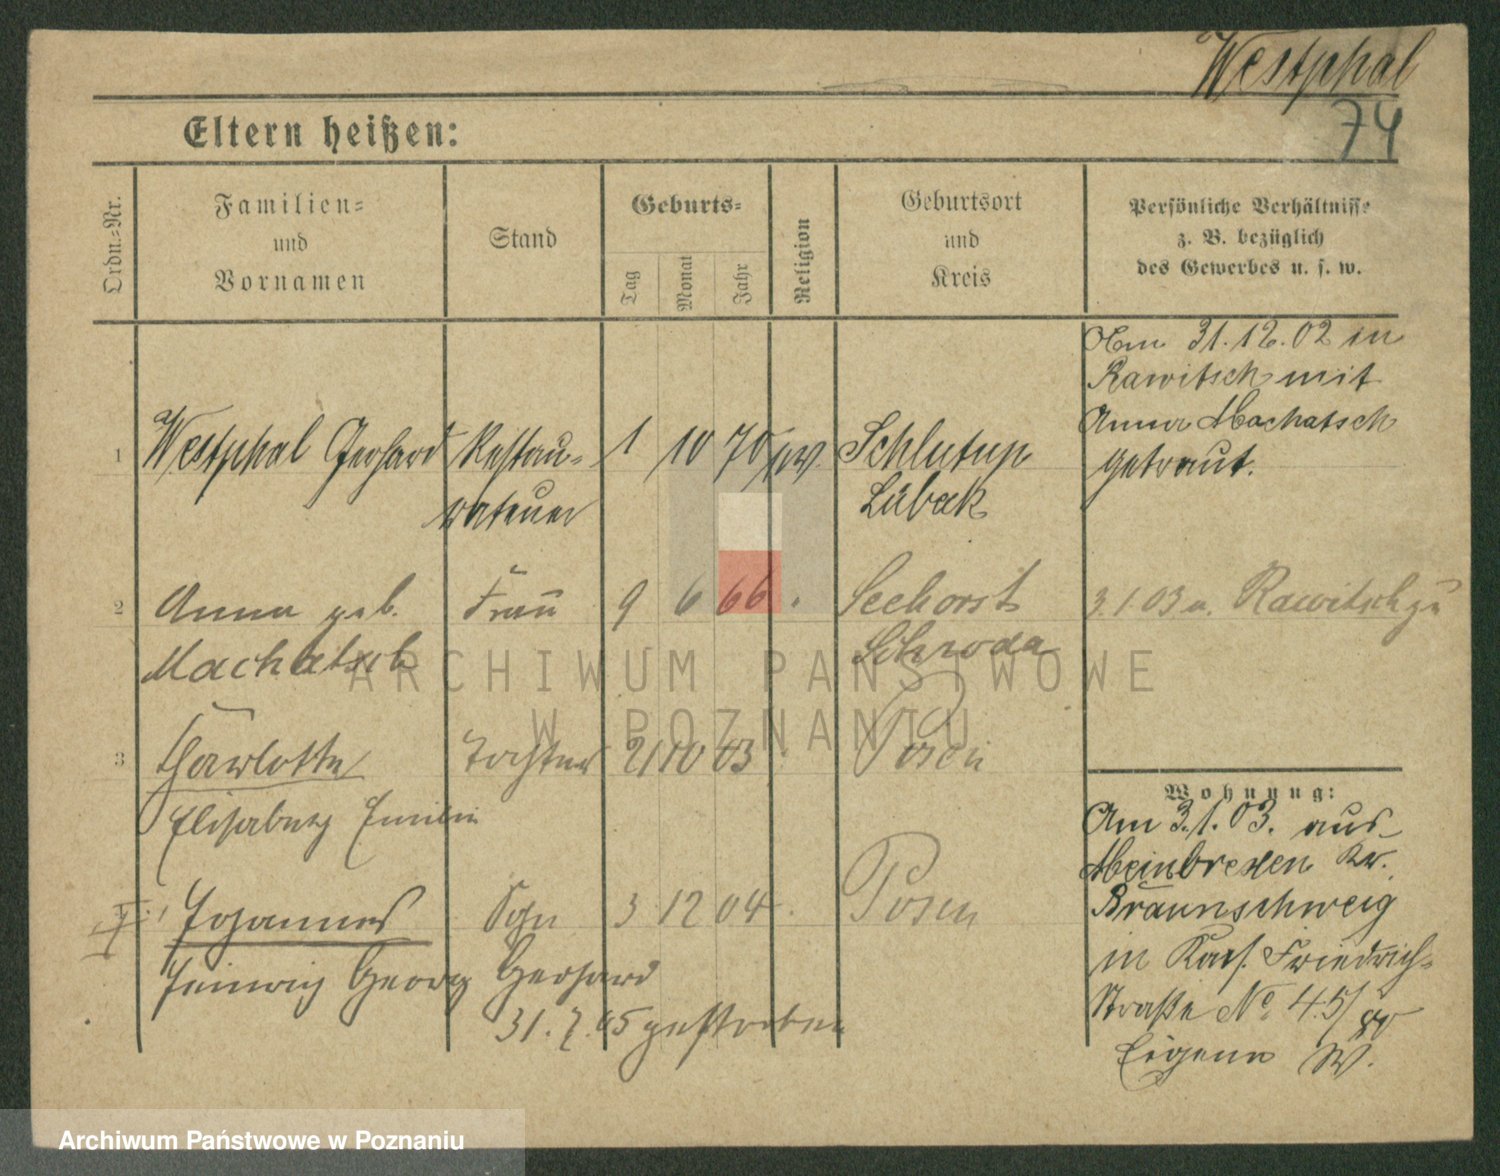 Westphal
74
Eltern heißen:
Ordn.-Nr.
Familien-
und
Vornamen
Stand
Geburts-
Tag
Monat
Jahr
Religion
Geburtsort
und
Kreis
Persönliche Verhältnisse
z. B. bezüglich
des Gewerbes u. s. w.
Am 31.12.02 in
Rawitsch mit
Anna Machatsch
getraut.
1 Westphal Gerhard Restau- 1 10 70 ev. Schlutup
rateur Lübeck
2 Anna geb. Frau 9 6 66 Seehorst 3.1.03 a. Rawitsch zu
Machatsch Schroda
3 Charlotte Tochter 21 10 03 Posen
Elisabeth Emilie
Johannes Sohn 3 12 04 Posen
Heinrich Georg Gerhard
31.7.05 gestorben
Wohnung:
Am 3.1.03. aus
Meinbrexen Kr.
Braunschweig
in Kais. Friedrich-
Straße No 45/
Eigene W.
ARCHIWUM PAŃSTWOWE
W POZNANIU
Archiwum Państwowe w Poznaniu